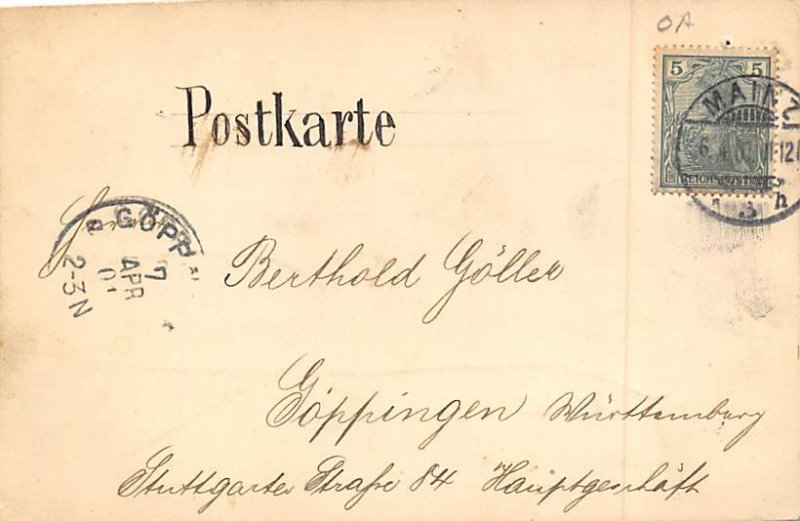 OA
Postkarte
5 5
REICHSPOST
MAINZ
6. 4. 0
GÖPP
7
APR
01
2-3N
Berthold Göller
Göppingen Württemberg
Stuttgarter Straße 84 Hauptgeschäft